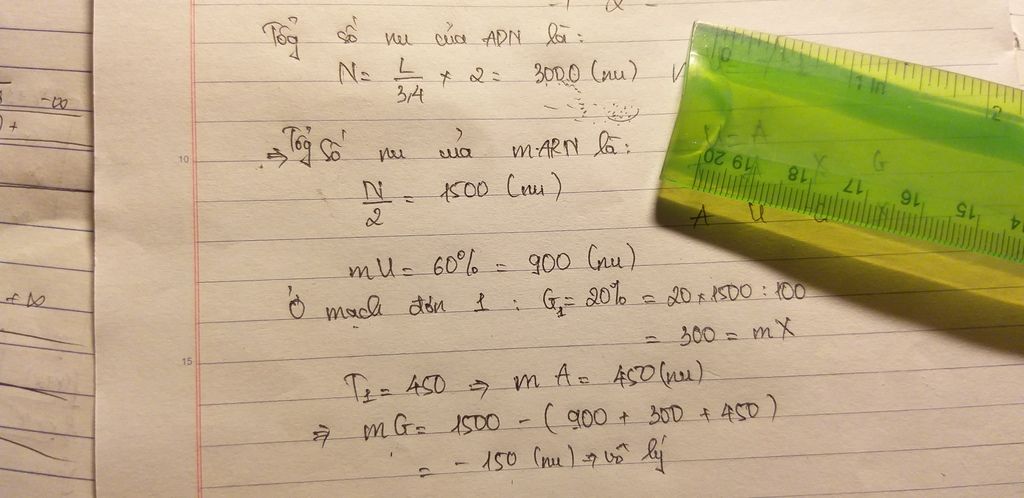 Tổg số nu của ADN là:
N = L/3,4 × 2 = 3000 (nu)
⇒ Tổg số nu của mARN là:
N/2 = 1500 (nu)
mU = 60% = 900 (nu)
Ở mạch đơn 1 : G₁ = 20% = 20 × 1500 : 100
= 300 = mX
T₁ = 450 ⇒ mA = 450 (nu)
⇒ mG = 1500 - (900 + 300 + 450)
= - 150 (nu) ⇒ vô lý
10
15
-∞
+ ∞
0 1 2
20 19 18 17 16 15 14
X G
A U